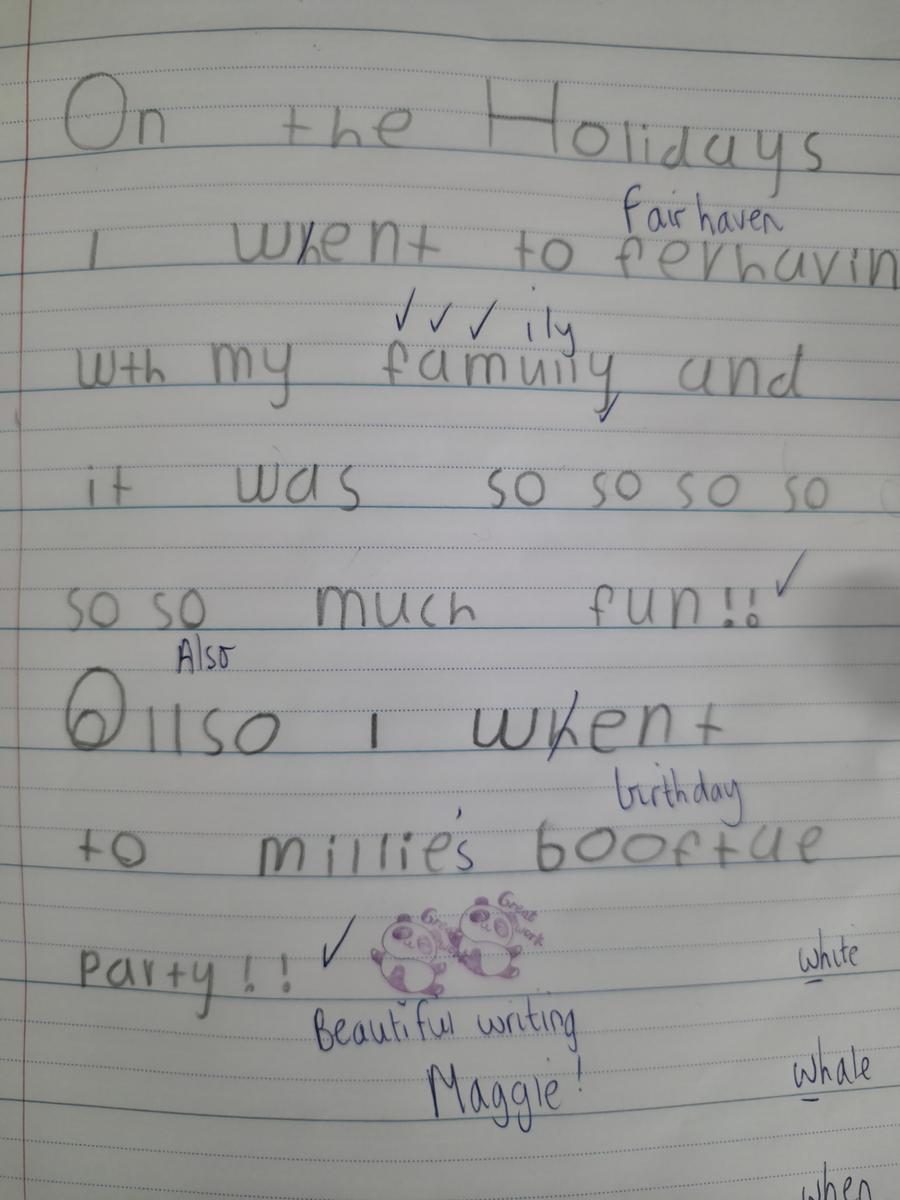 On the Holidays
fair haven
I whent to ferhavin
✓ ✓ ✓ ily
wth my famully and
✓
it was so so so so
so so much fun!! ✓
Also
Ollso I whent
birthday
to millie's booftae
party!! ✓
Great work Great work
white
Beautiful writing
Maggie!
whale
when